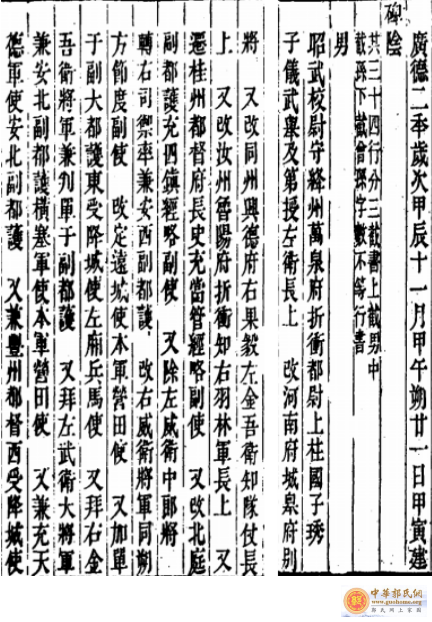 廣德二年歲次甲辰十一月甲午朔廿一日甲寅建
碑陰
共三十四行分三截書上截男中
截孫下截曾孫字數不等行書
男
昭武校尉守絳州萬泉府折衝都尉上柱國子琇
子儀武舉及第授左衛長上　改河南府城皋府別
將　又改同州興德府右果毅左金吾衛知隊仗長
上　又改汝州魯陽府折衝知右羽林軍長上　又
遷桂州都督府長史充當管經略副使　又改北庭
副都護充四鎮經略副使　又除左威衛中郎將
轉右司禦率兼安西副都護　改右威衛將軍同朔
方節度副使　改定遠城使本軍營田使　又加單
于副大都護東受降城使左廂兵馬使　又拜右金
吾衛將軍兼判單于副都護　又拜左武衛大將軍
兼安北副都護橫塞軍使本軍營田使　又兼充天
德軍使安北副都護　又兼豐州都督西受降城使
中華郭氏網
www.guoshome.org
郭氏網上家園